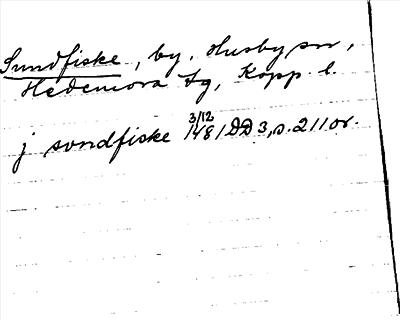 Sundfiske, by, Husby sn,
Hedemora tg, Kopp. l.
j svndfiske 3/12 1481 DD 3, s. 211 or.